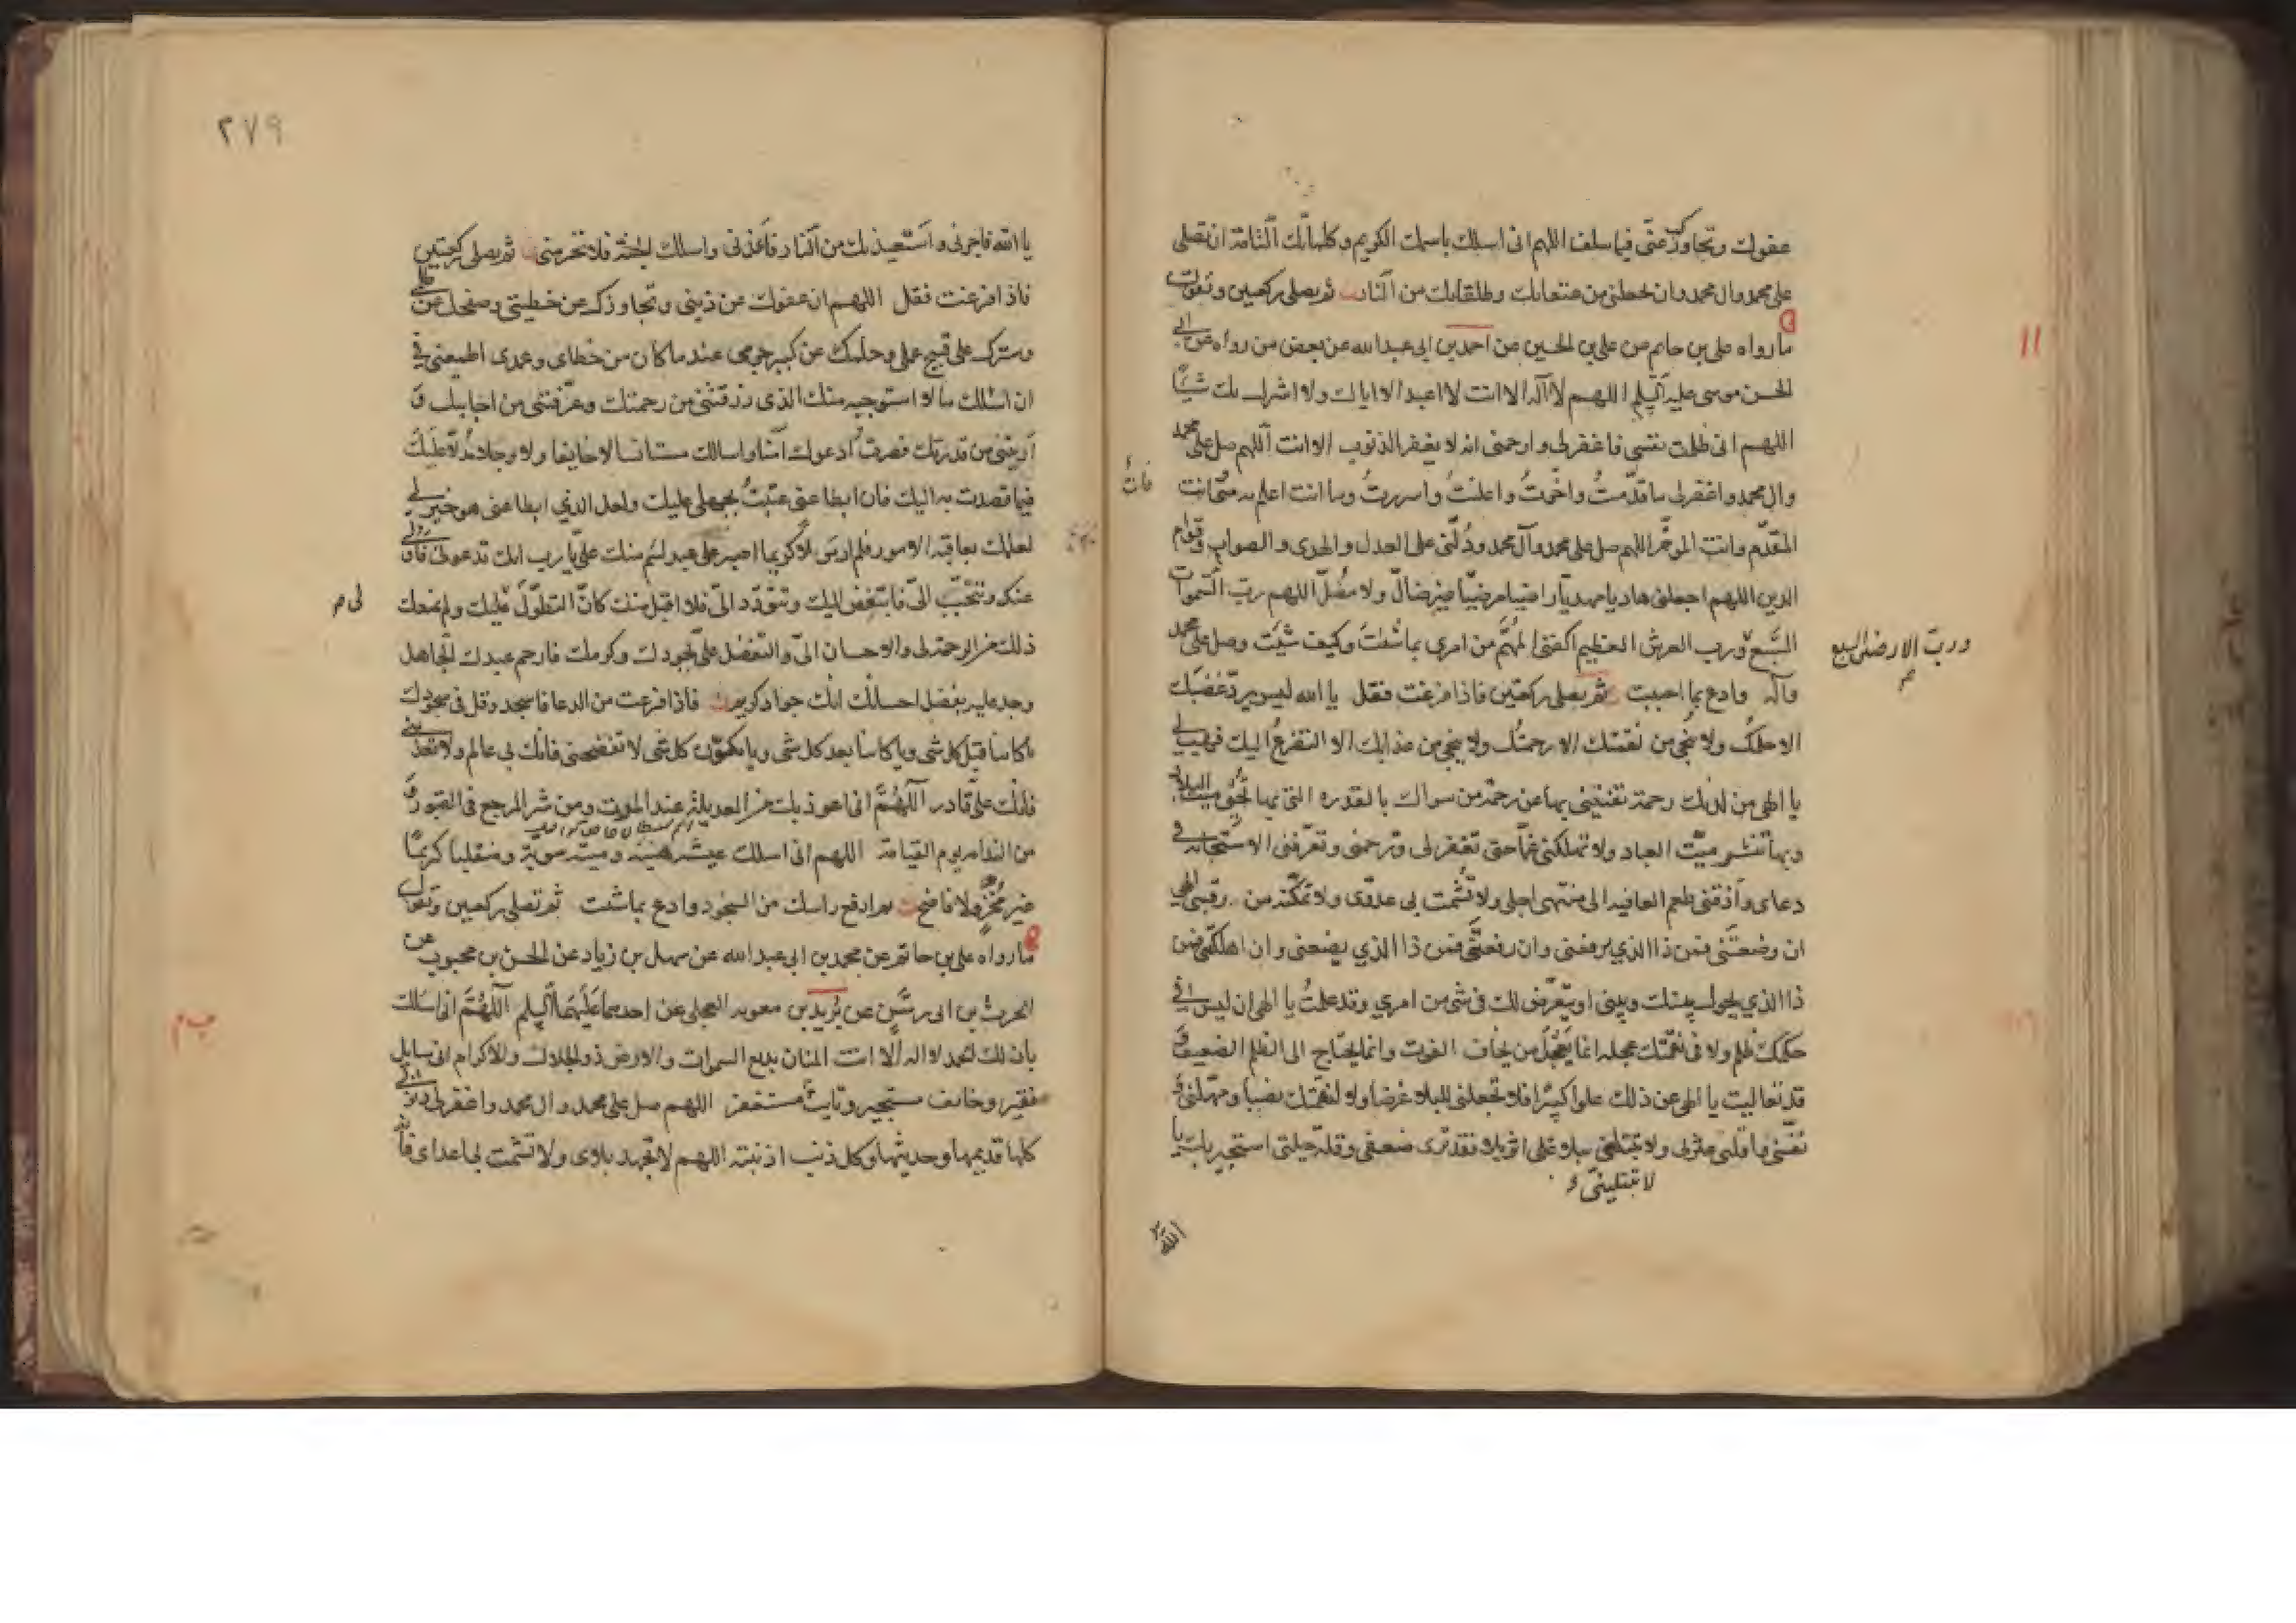 عفوك وتجاوزك عنى فيما سلف اللهم انى اسئلك باسمك الكريم وكلماتك التامة ان تصلى
على محمد وال محمد وان تجعلنى من عتقائك وطلقائك من النار ثم يصلى ركعتين وتقول
ما رواه على بن حاتم عن على بن الحسين عن احمد بن ابى عبد الله عن بعض من رواه عن ابى
الحسن موسى عليه السلم اللهم لا اله الا انت لا اعبد الا اياك ولا اشرك بك شيئا
اللهم انى ظلمت نفسى فاغفرلى وارحمنى انه لا يغفر الذنوب الا انت اللهم صل على محمد
وال محمد واغفرلى ما قدّمتُ واخّرتُ واعلنتُ واسررتُ وما انت اعلم به منّى انت
المقدّم وانت المؤخّر اللهم صل على محمد وآل محمد ودُلّنى على العدل والهدى والصواب وقوام
الدين اللهم اجعلنى هاديا مهديّا راضيا مرضيّا غير ضالّ ولا مضُلّ اللهم ربّ السموات
السّبع ورب العرش العظيم اكفنى المهُمّ من امرى بما شئتَ وكيف شئتَ وصل على محمد
وآله وادع بما احببت ثم يصلى ركعتين فاذا فرغت فقل يا الله ليس يردّ غضبك
الا حلمك ولا ينجى من نقمتك الا رحمتك ولا ينجى من عذابك الا التضرع اليك فهب لى
يا الهى من لدنك رحمة تغنينى بها عن رحمة من سواك بالقدره التى بها تُحيى ميت البلاد
وبها تنشر ميّت العباد ولا تهلكنى غمّا حتى تغفرلى وترحمنى وتعرّفنى الاستجابة فى
دعاى واذقنى طعم العافيه الى منتهى اجلى ولا تُشمت بى عدوّى ولا تمكّنه من رقبتى الهى
ان وضعتَنى فمن ذا الذي يرفعنى وان رفعتَنى فمن ذا الذي يضعنى وان اهلكتنى فمن
ذا الذي يحول بينك وبينى او يتعرّض لك فى شى من امري وقد علمتُ يا الهى ان ليس فى
حكمك ظلم ولا فى نقمتك عجله انما يعجل من يخاف الفوت وانما يحتاج الى الظلم الضعيف و
قد تعاليت يا الهى عن ذلك علوا كبيرا فلا تجعلنى للبلاء غرضا ولا لنقمتك نصبا ومهّلنى و
نفّسنى واقلنى عثرتى ولا تتبعنى ببلاء على اثر بلاء فقد ترى ضعفى وقلة حيلتى استجير بك يا
لا تبتلينى
الله
وربّ الارضين السبع
فانت
٢٧٩
يا الله فاجرنى واستعيذ بك من النار فاعذنى واسئلك الجنة فلا تحرمنى ثم يصلى ركعتين
فاذا فرغت فقل اللهم ان عفوك عن ذنبى وتجاوزك عن خطيئتى وصفحك عن
وسترك على قبيح عملى وحلمك عن كبير جرمى عند ما كان من خطاى وعمدى اطمعنى فى
ان اسئلك ما لا استوجبه منك الذى رزقتنى من رحمتك وعرّفتنى من اجابتك و
اريتنى من قدرتك فصرت ادعوك آمنا واسالك مستانسا لا خائفا ولا وجلا مُدلا عليك
فيما قصدت به اليك فان ابطا عنى عتبتُ بجهلى عليك ولعل الذي ابطا عنى هو خير لى
لعلمك بعاقبة الامور فلم ار مولى كريما اصبر على عبد لئيم منك علىّ يا رب انك تدعونى فاولى
عنك وتتحبّب الىّ فاتبغض اليك وتتودّد الىّ فلا اقبل منك كانّ التطوّل عليك ولم يمنعك
ذلك من الرحمة لى والاحسان الىّ والتفضل علىّ بجودك وكرمك فارحم عبدك الجاهل
وجد عليه بفضل احسانك انك جواد كريم فاذا فرغت من الدعا فاسجد وقل فى سجودك
يا كائنا قبل كل شى ويا كائنا بعد كل شى ويا مكوّن كل شى لا تفضحنى فانك بى عالم ولا تعذبنى
فانك علىّ قادر اللهُمّ انى اعوذ بك من العديلة عند الموت ومن شر المرجع فى القبور و
من الندامه يوم القيامة اللهم انى اسئلك عيشة هنيئة وميتة سويّة ومنقلبا كريمًا
غير مُخزٍ ولا فاضح ثم ارفع راسك من السجود وادع بما شئت ثم تصلى ركعتين وتقول
ما رواه على بن حاتم عن محمد بن ابى عبد الله عن سهل بن زياد عن الحسن بن محبوب عن
عن بُريد بن معويه العجلى عن احدهما عليهما السلم اللهُمّ انى اسئلك
بان لك الحمد لا اله الا انت المنان بديع السموات والارض ذو الجلال والاكرام انى سايل
فقير وخائف مستجير وتائب مستغفر اللهم صل على محمد وال محمد واغفرلى ذنوبى
كلها قديمها وحديثها وكل ذنب اذنبته اللهم لا تجهد بلاوى ولا تشمت بى اعداى فانه